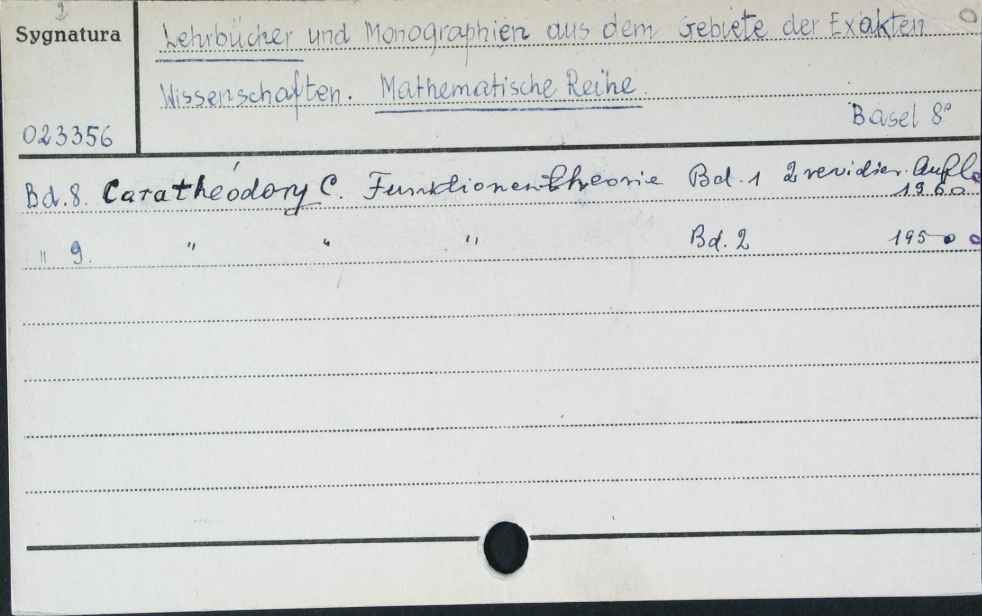 2
Sygnatura
023356
Lehrbücher und Monographien aus dem Gebiete der Exakten
Wissenschaften. Mathematische Reihe.
Basel 8°
Bd. 8. Carathéodory C. Funktionentheorie Bd. 1 2 revidier. Aufl.
1960
" 9. " " " Bd. 2 1950